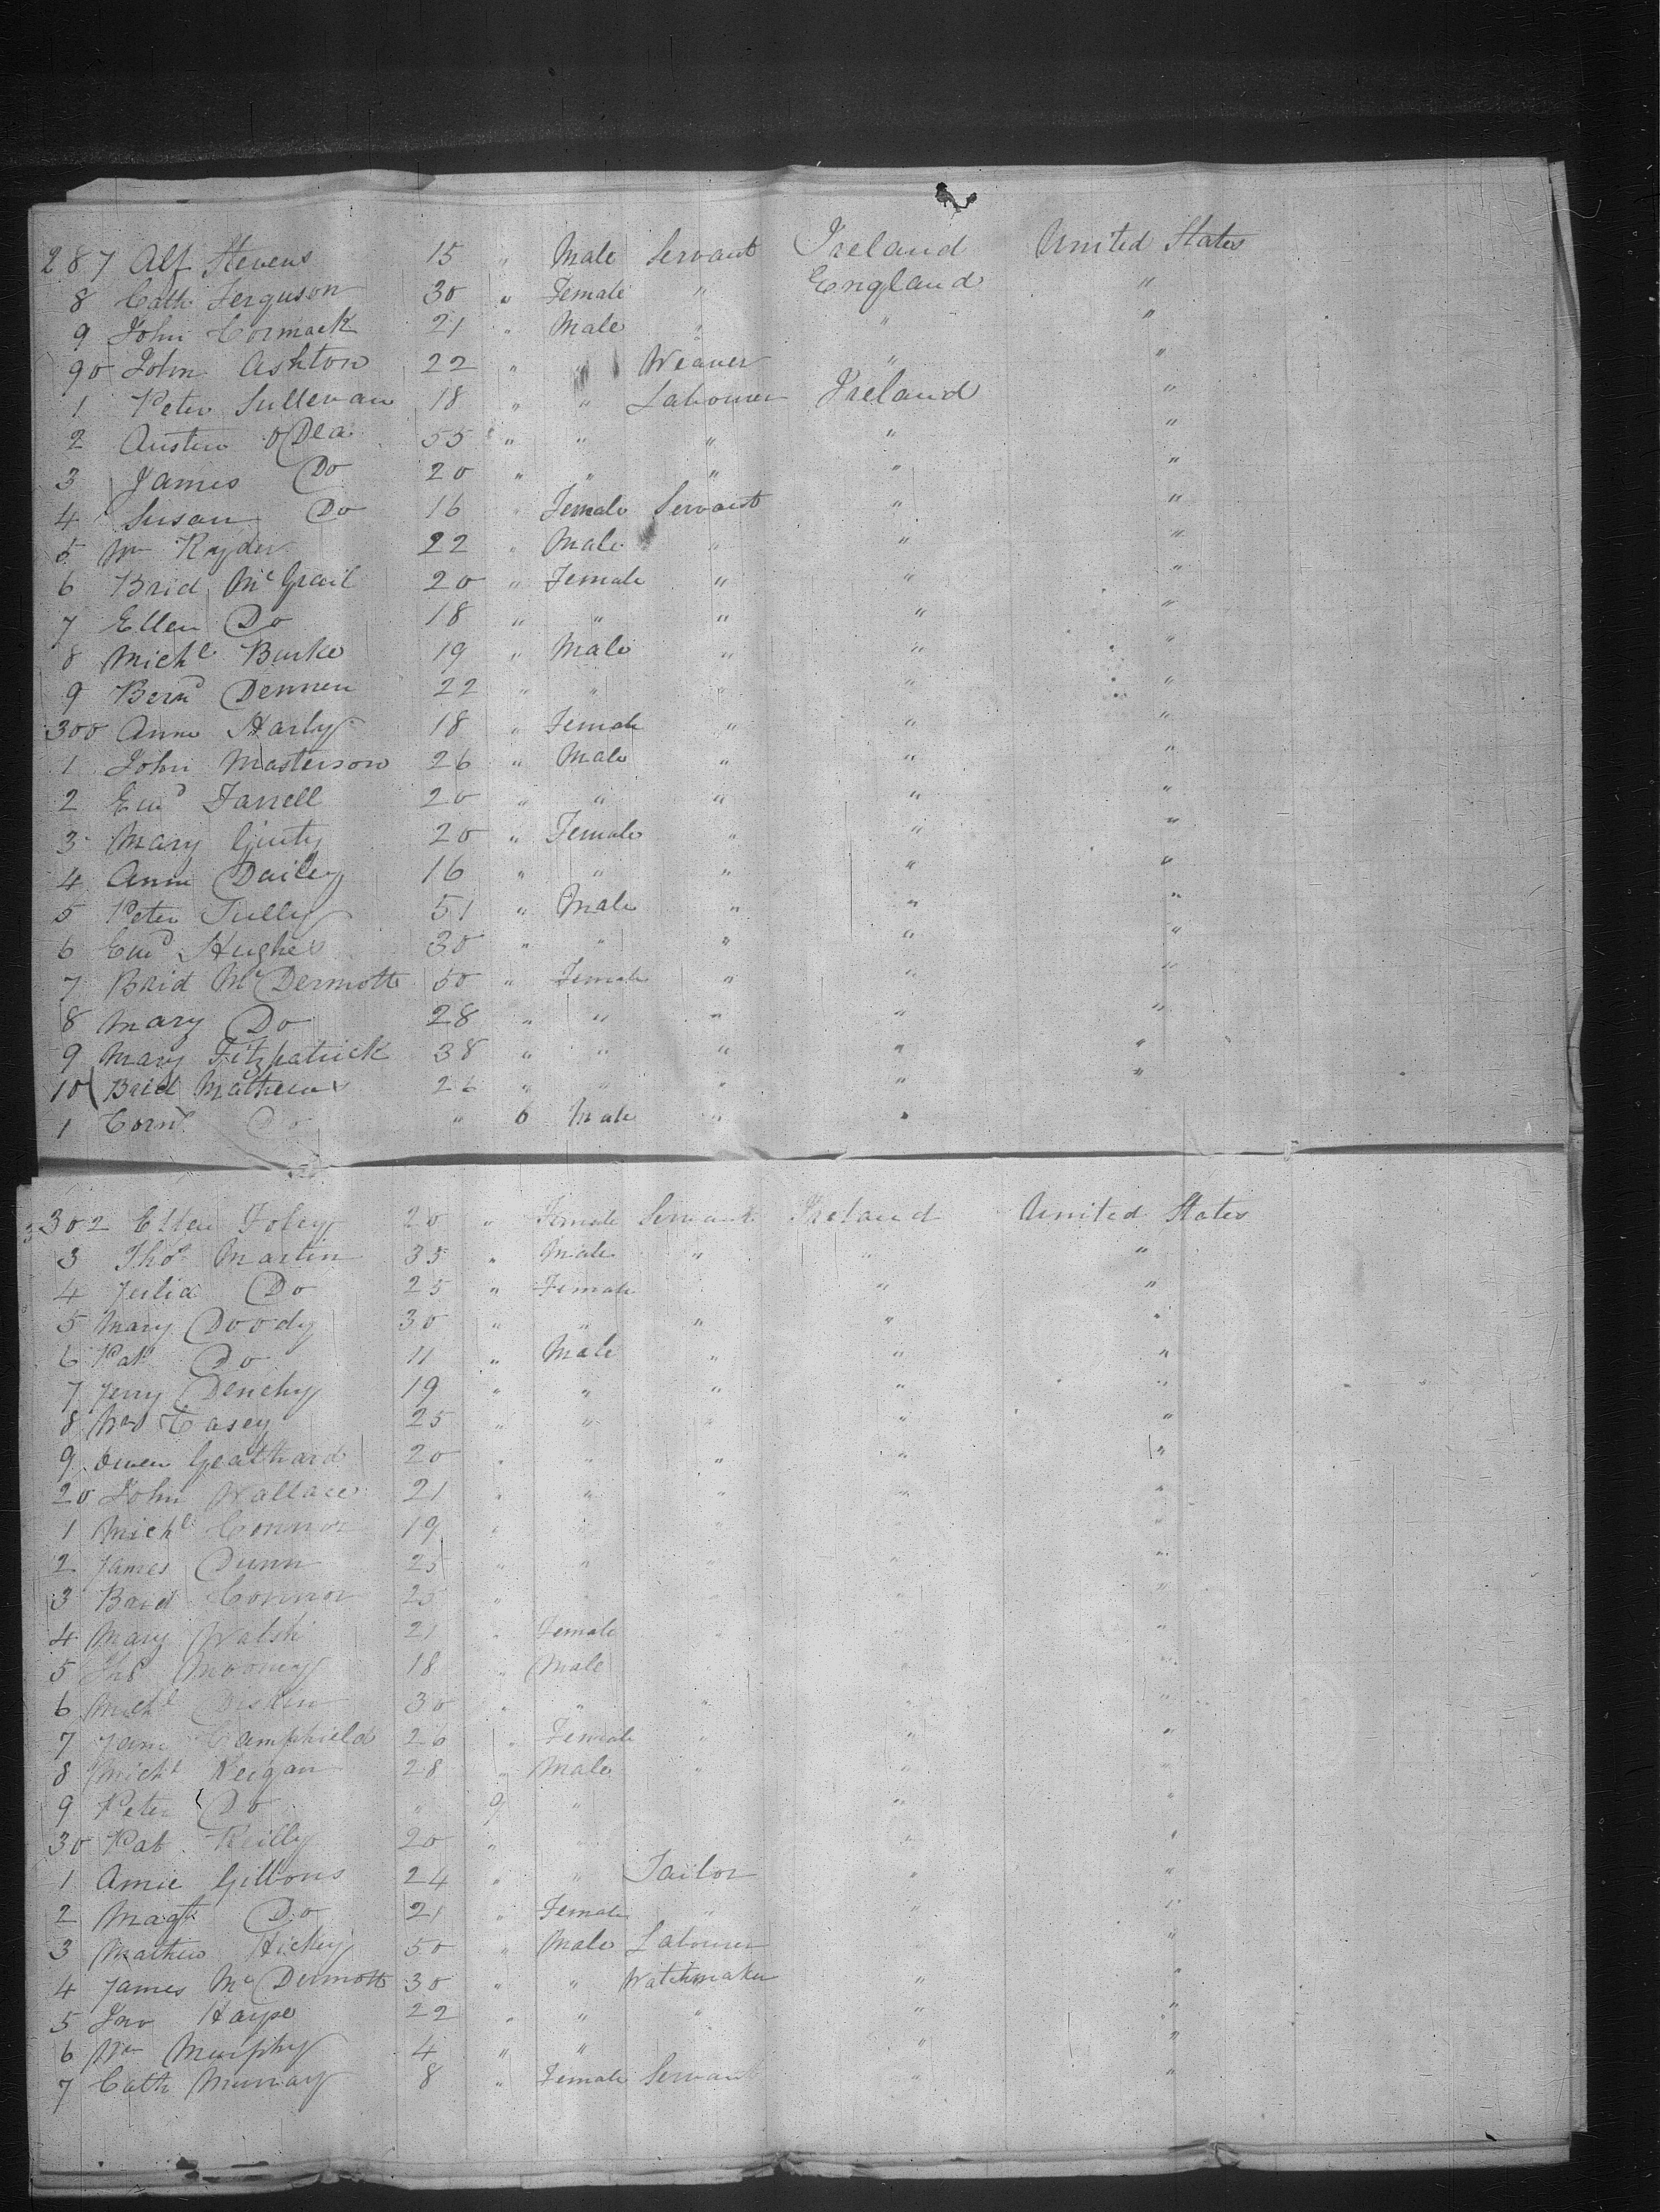 287 Alf Stevens 15 " Male Servant Ireland United States
8 Cath Ferguson 30 " Female " England "
9 John Cormack 21 " Male " " "
90 John Ashton 22 " " Weaver " "
1 Peter Sullevan 18 " " Labourer Ireland "
2 Austin O Dea 55 " " " " "
3 James Do 20 " " " " "
4 Susan Do 16 " Female Servant " "
5 Wm Ryder 22 " Male " " "
6 Brid McGrail 20 " Female " " "
7 Ellen Do 18 " " " " "
8 Michl Burke 19 " Male " " "
9 Bernd Dennen 22 " " " " "
300 Anne Harly 18 " Female " " "
1 John Masterson 26 " Male " " "
2 Ewd Farrell 20 " " " " "
3 Mary Ginty 20 " Female " " "
4 Ann Dailey 16 " " " " "
5 Peter Tully 51 " Male " " "
6 Ewd Hughes 30 " " " " "
7 Brid McDermott 50 " Female " " "
8 Mary Do 28 " " " " "
9 Mary Fitzpatrick 38 " " " " "
10 Brid Mathews 26 " " " " "
1 Cornl Do " 6 Male " "
302 Ellen Foley 20 " Female Servant Ireland United States
3 Thos Martin 35 " Male " " "
4 Julia Do 25 " Female " "
5 Mary Doody 30 " " " " "
6 Pat Do 11 " Male " " "
7 Jerry Denehy 19 " " " " "
8 Wm Casey 25 " " " " "
9 Owen Geathard 20 " " " " "
20 John Wallace 21 " " " " "
1 Michl Connor 19 " " " " "
2 James Dunn 25 " " " " "
3 Brid Connor 25 " " " " "
4 Mary Walsh 21 " Female " " "
5 Mooney 18 " Male " "
6 Michl Diskin 30 " " " " "
7 Jane Camphield 26 " Female " " "
8 Michl Keigan 28 " Male " " "
9 Peter Do " 9 " " "
30 Pat Reilly 20 " " "
1 Amie Gibbons 24 " " Tailor " "
2 Magt Do 21 " Female " " "
3 Mathew Hickey 50 " Male Labourer " "
4 James McDermott 30 " " Watchmaker " "
5 Jno Harpe 22 " " " " "
6 Wm Murphy 4 " " " "
7 Cath Murray 8 " Female Servant " "